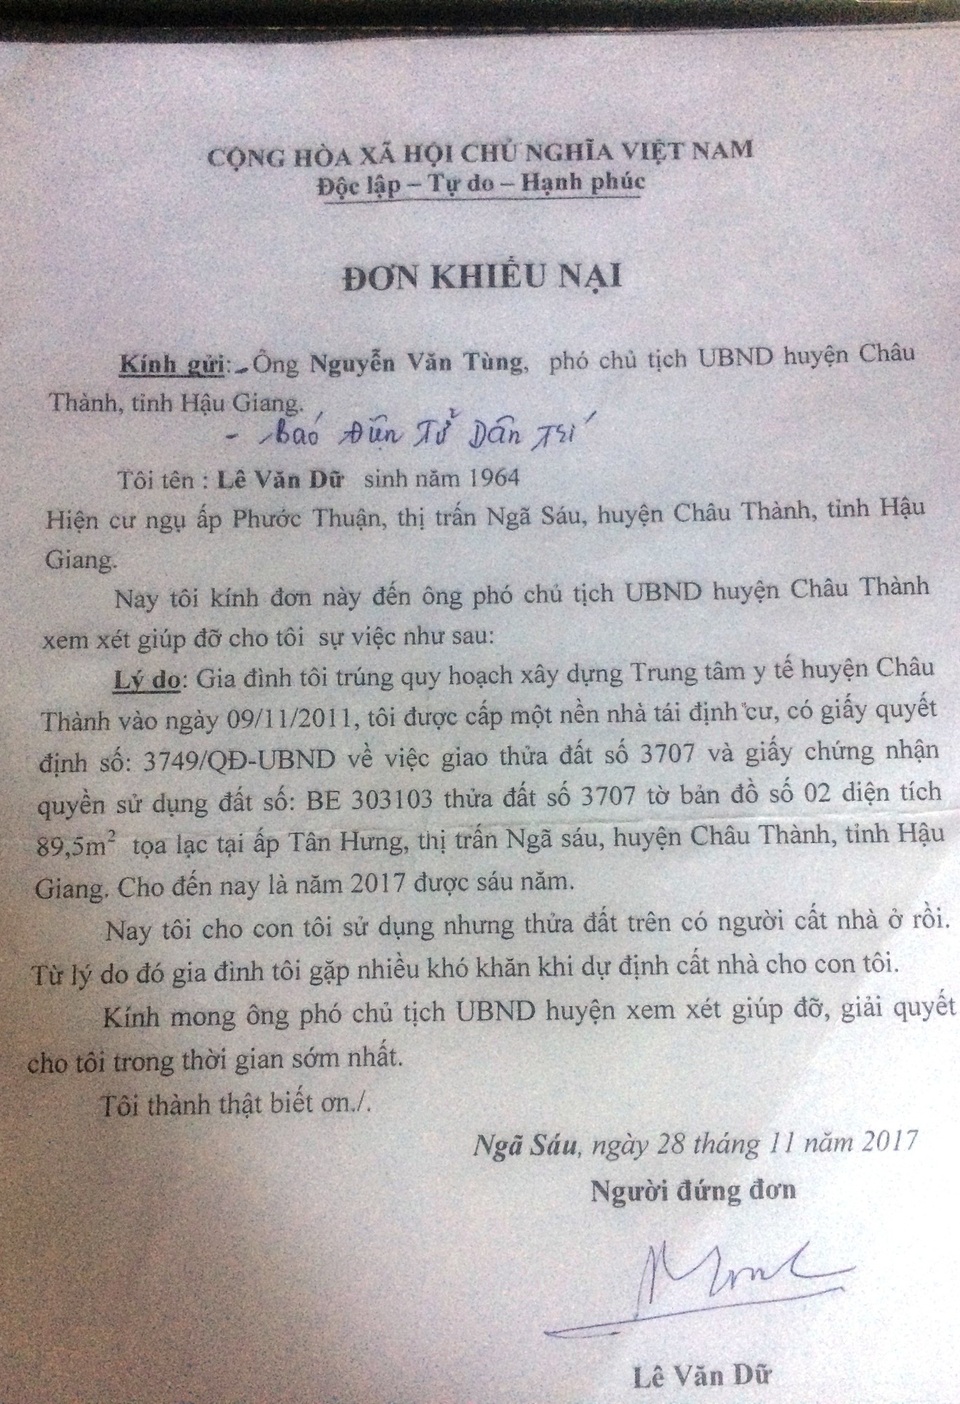 CỘNG HÒA XÃ HỘI CHỦ NGHĨA VIỆT NAM
Độc lập – Tự do – Hạnh phúc
ĐƠN KHIẾU NẠI
Kính gửi: - Ông Nguyễn Văn Tùng, phó chủ tịch UBND huyện Châu
Thành, tỉnh Hậu Giang.
- Báo Điện Tử Dân Trí
Tôi tên : Lê Văn Dữ sinh năm 1964
Hiện cư ngụ ấp Phước Thuận, thị trấn Ngã Sáu, huyện Châu Thành, tỉnh Hậu
Giang.
Nay tôi kính đơn này đến ông phó chủ tịch UBND huyện Châu Thành
xem xét giúp đỡ cho tôi sự việc như sau:
Lý do: Gia đình tôi trúng quy hoạch xây dựng Trung tâm y tế huyện Châu
Thành vào ngày 09/11/2011, tôi được cấp một nền nhà tái định cư, có giấy quyết
định số: 3749/QĐ-UBND về việc giao thửa đất số 3707 và giấy chứng nhận
quyền sử dụng đất số: BE 303103 thửa đất số 3707 tờ bản đồ số 02 diện tích
89,5m² tọa lạc tại ấp Tân Hưng, thị trấn Ngã sáu, huyện Châu Thành, tỉnh Hậu
Giang. Cho đến nay là năm 2017 được sáu năm.
Nay tôi cho con tôi sử dụng nhưng thửa đất trên có người cất nhà ở rồi.
Từ lý do đó gia đình tôi gặp nhiều khó khăn khi dự định cất nhà cho con tôi.
Kính mong ông phó chủ tịch UBND huyện xem xét giúp đỡ, giải quyết
cho tôi trong thời gian sớm nhất.
Tôi thành thật biết ơn./.
Ngã Sáu, ngày 28 tháng 11 năm 2017
Người đứng đơn
Lê Văn Dữ